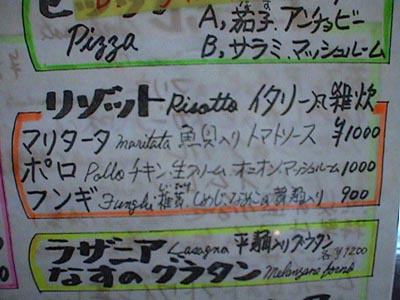 Pizza
A,茄子,アンチョビー
B,サラミ,マッシュルーム
リゾット Risotto イタリー風雑炊
マリタータ maritata 魚貝入りトマトソース ¥1000
ポロ Pollo チキン,生クリーム,オニオン,マッシュルーム 1000
フンギ Funghi 椎茸,しめじ,えのきの 入り 900
ラザニア Lasagna 平麺入りグラタン 各¥1200
なすのグラタン Melanzane forno